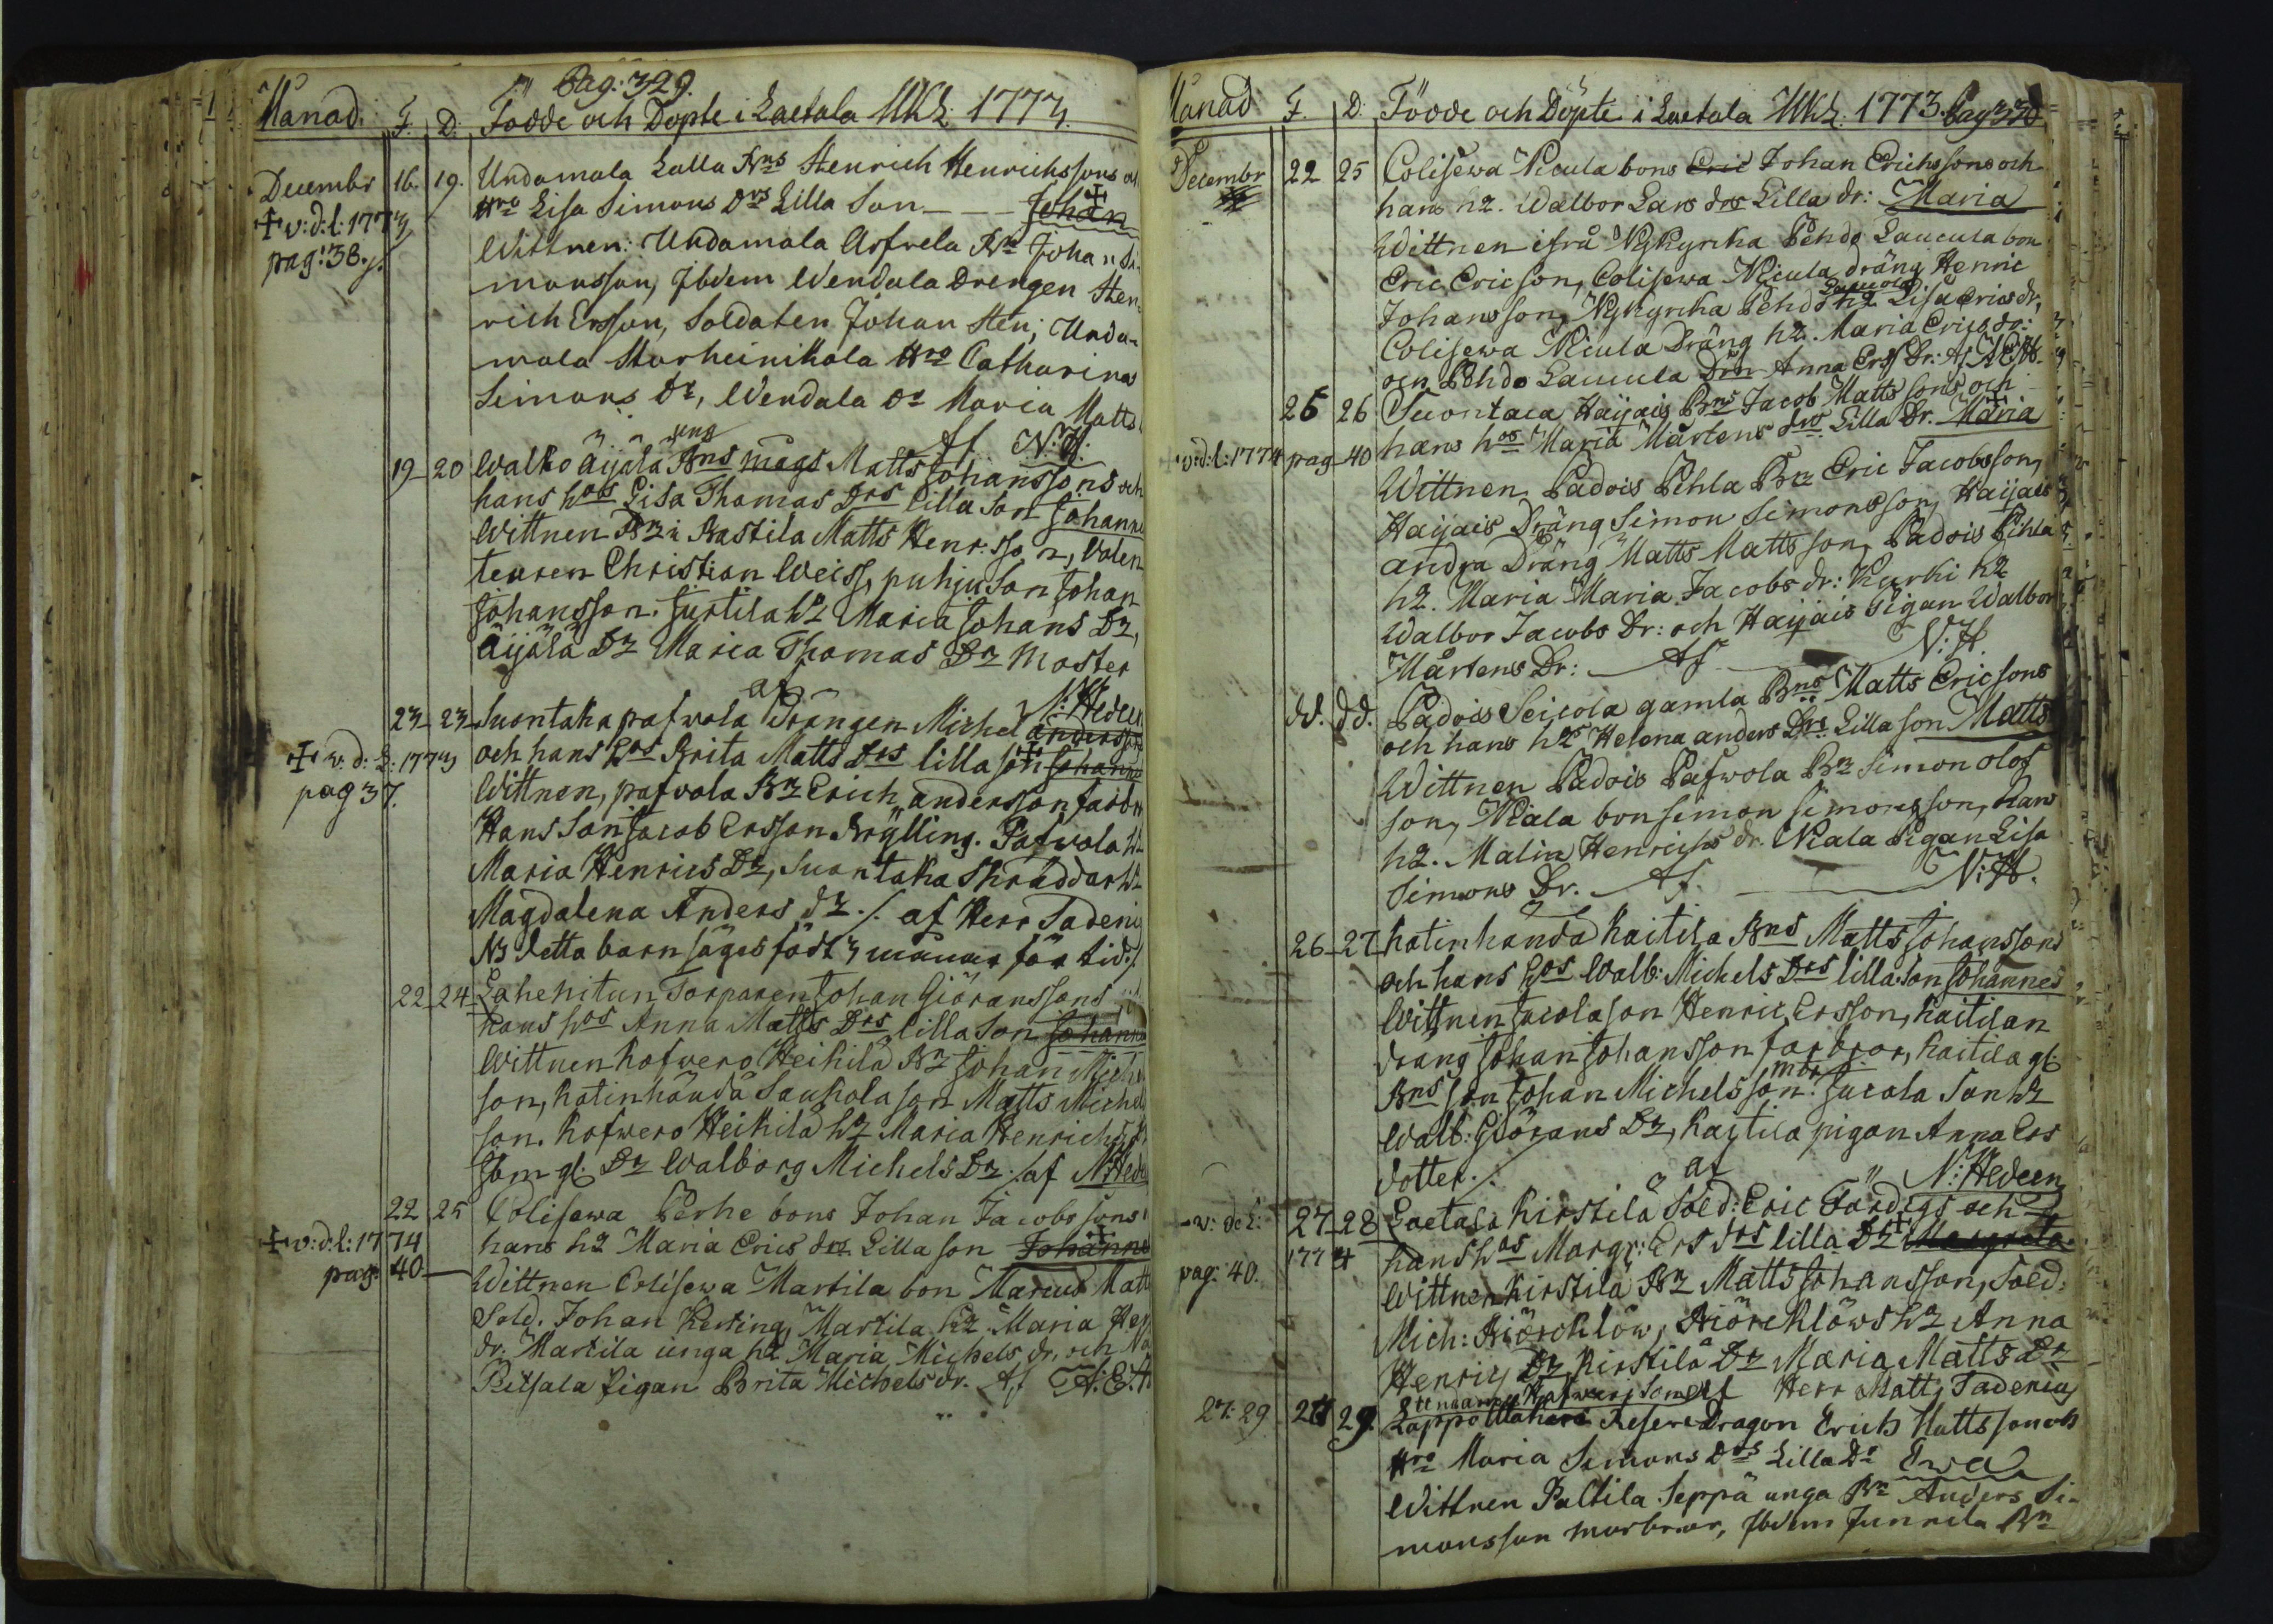 Pag: 329.
Månad. F. D. Födde och Döpte i Laetala MKL. 1773.
Decembr 16. 19. Undamala Lalla Bns Henrich Henrichssons och
✝ v: d: l: 1773 Hro Lisa Simons Drs Lilla Son - - - Johan
pag: 38. Wittnen: Undamala Arfvela Bn Johan Si-
monsson, Ibidem Wendala Drengen Hen-
rich Ersson, Soldaten Johan Sten; Unda-
mala Storheinikala Hro Catharina
Simons Dr, Wendala Dr Maria Matts
Af N: H.
19 20 Walko äijälä Bns mågs Matts Johanssons och
hans hos Lisa Thomas Drs lilla Son Johannes
Wittnen Bn i Rastila Matts Henr:sson, Volen
teuren Christian Weiss, puhju Son Johan
Johansson. Jurtila h2 Maria Johans Dr,
Äijälä Dr Maria Thomas Dr Moster
af N: Hedeen
23 23 Suontaka pafwola Drängen Michel Anderssons
och hans hos Brita Matts Drs lilla son Johannes
✝ v: d: L: 1773
pag 37. Wittnen, pafwola Bn Erich andersson farbr
Hans Son Jacob Ersson Brylling. Pafwola h2
Maria Henrics Dr, Suontaka Skräddar h2
Magdalena Anders dr ./. af Herr Tadeni
NB detta barn säges födt 3 månar för tid ./.
22 24 Lahenitun Torparen Johan Giöranssons och
hans hos Anna Matts Drs lilla Son Johannes
Wittnen kofwero Heikilä Bn Johan Michels
son, katinhändä Saukola son Matts Michels
son. kofwero Heikilä h2 Maria Henrichs dr
Ibm gl. Dr Walborg Michels Dr ./. af N: Hedeen
22 25 Colisewa Perhe bons Johan Jacobssons
✝ v: d: l: 1774 hans h2 Maria Erics drs Lilla son Johannes
pag. 40 Wittnen Colisewa Martila bon Marcus Matts
Sold. Johan Kesting, Martila h2. Maria Hen
dr. Martila unga h2 Maria Michels dr, och
Pitsala Pigan Brita Michels dr. Af A: E. H.
Månad F. D. Födde och Döpte i Laetala MKL. 1773. Pag 330
Decembr 22 25 Colisewa Nicula bons Eric Johan Erichssons och
hans h2. Walbor Lars drs Lilla dr: Maria
Wittnen ifrå Nykyrcka Pehdo Laucula bon
Eric Ericson, Colisewa Nicula dräng Henric
Johansson, Nykyrcka Pehdo Laucula h2 Lisa Erics dr,
Colisewa Nicula Dräng h2. Maria Erics dr:
och Pehdo Laucula Drn Anna Erss Dr: Af A: E: H.
25 26 Suontaca Haijais Bns Jacob Mattssons och
✝ v: d: l: 1774 pag 40 hans hos Maria Mårtens drs Lilla Dr. Maria
Wittnen, Padois Pehla Bn Eric Jacobsson,
Haijais Dräng Simon Simonsson, Haijais
andra Dräng Matts Mattsson, Padois Pihla
h2. Maria Maria Jacobs dr: Kurki h2
Walbor Jacobs Dr: och Haijais Pigan Walbor
Mårtens Dr: Af N: H.
dd. dd. Padois Seicola gamla Bns Matts Ericsons
och hans h2s Helena anders Drs Lilla son Matts
Wittnen Padois Pafwola Bn Simon olof
son, Niala bon Simon Simonsson, hans
h2. Malin Henrichs dr. Niala Pigan Lisa
Simons Dr. Af. N: H.
26 27 katinhända kaitila Bns Matts Johanssons
och hans hos Walb: Michels Drs lilla Son Johannes
Wittnen Jucola son Henric Ersson, kaitilan
drang Johan Johansson farbror, kaitila gl.
Bns son Johan Michelsson mbr. Jucola Son h2
Walb: Giörans Dr, kaitila pigan Anna Ers
dotter ./. af N: Hedeen
✝ v: d: L: 27 28 Laetala kirstilä Sold: Eric Färdigs och
1774 hans hos Margr: Ers drs lilla Dr Margreta
pag. 40. Wittnen kirstilä Bn Matts Johansson, Sold:
Mich: Biörcklöw, Biörcklöws h2 Anna
Henrics Dr, kirstilä Dr Maria Matts Dr
af Herr Matts Tadenius
27. 29 28 29. Lappo Reserv Dragon Erich Mattsson och
Hro Maria Simons Drs Lilla Dr Ewa
Wittnen Paltila Seppä unga Bn Anders Si-
monsson morbror, Ibidem Junnila Bn